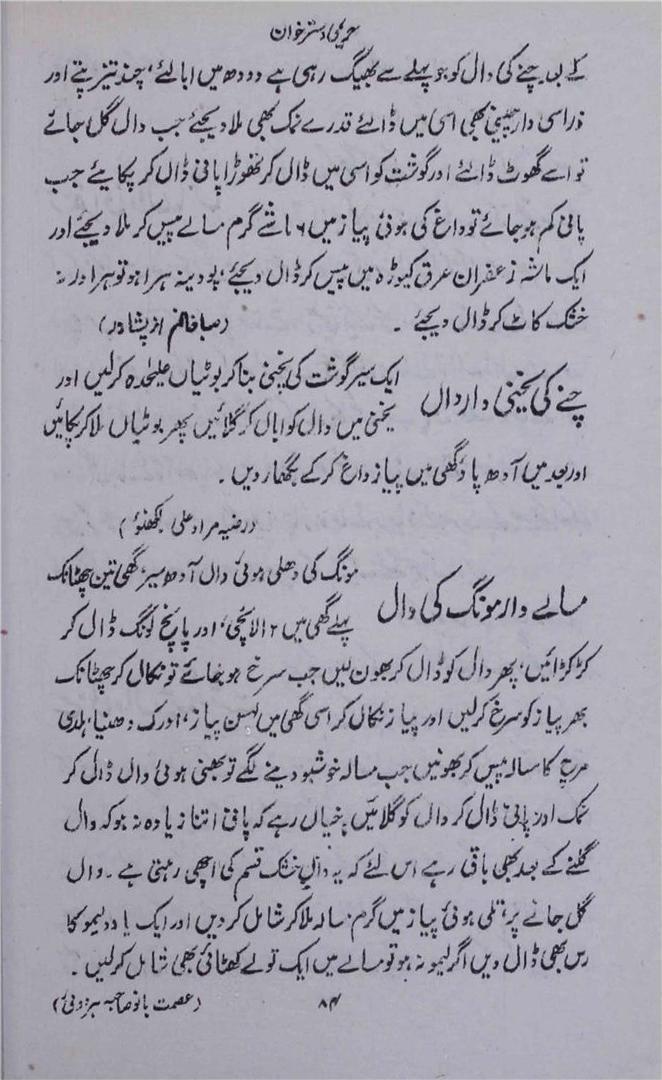 حریمی دسترخوان
کے بعد چنے کی دال کو جو پہلے سے بھیگ رہی ہے دودھ میں ابالئے، چند تیز پتے اور
ذرا سی دارچینی بھی اسی میں ڈالئے قدرے نمک بھی ملا دیجئے جب دال گل جائے
تو اسے گھوٹ ڈالئے اور گوشت کو اسی میں ڈال کر تھوڑا پانی ڈال کر پکایئے جب
پانی کم ہو جائے تو داغ کی ہوئی پیاز میں ۶ ماشے گرم مسالے پیس کر ملا دیجئے اور
ایک ماشہ زعفران عرق کیوڑہ میں پیس کر ڈال دیجئے، پودینہ ہرا ہو تو ہرا ورنہ
خشک کاٹ کر ڈال دیجئے ۔
(صبا خانم از پشاور)
چنے کی یخنی دار دال
ایک سیر گوشت کی یخنی بنا کر بوٹیاں علیٰحدہ کر لیں اور
یخنی میں دال کو ابال کر گلائیں پھر بوٹیاں ملا کر پکائیں
اور بعد میں آدھ پاؤ گھی میں پیاز داغ کر کے بگھار دیں ۔
(رضیہ مراد علی لکھنؤ)
مسالے دار مونگ کی دال
مونگ کی دھلی ہوئی دال آدھ سیر، گھی تین چھٹانک
پہلے گھی میں ۲ الائچی، اور پانچ لونگ ڈال کر
کڑکڑائیں، پھر دال کو ڈال کر بھون لیں جب سرخ ہو جائے تو نکال کر چھٹانک
بھر پیاز کو سرخ کر لیں اور پیاز نکال کر اسی گھی میں لہسن پیاز، ادرک دھنیا، ہلدی
مرچ کا مسالہ پیس کر بھونیں جب مسالہ خوشبو دینے لگے تو بھنی ہوئی دال ڈال کر
نمک اور پانی ڈال کر دال کو گلائیں، خیال رہے کہ پانی اتنا زیادہ نہ ہو کہ دال
گلنے کے بعد بھی باقی رہے اس لئے کہ یہ دال خشک قسم کی اچھی رہتی ہے ۔ دال
گل جانے پر، تلی ہوئی پیاز میں گرم مسالہ ملا کر شامل کر دیں اور ایک یا دو لیمو کا
رس بھی ڈال دیں اگر لیمو نہ ہو تو مسالے میں ایک تولے کھٹائی بھی شامل کر لیں ۔
(عصمت بانو صاحبہ ہردوئی)
۸۴